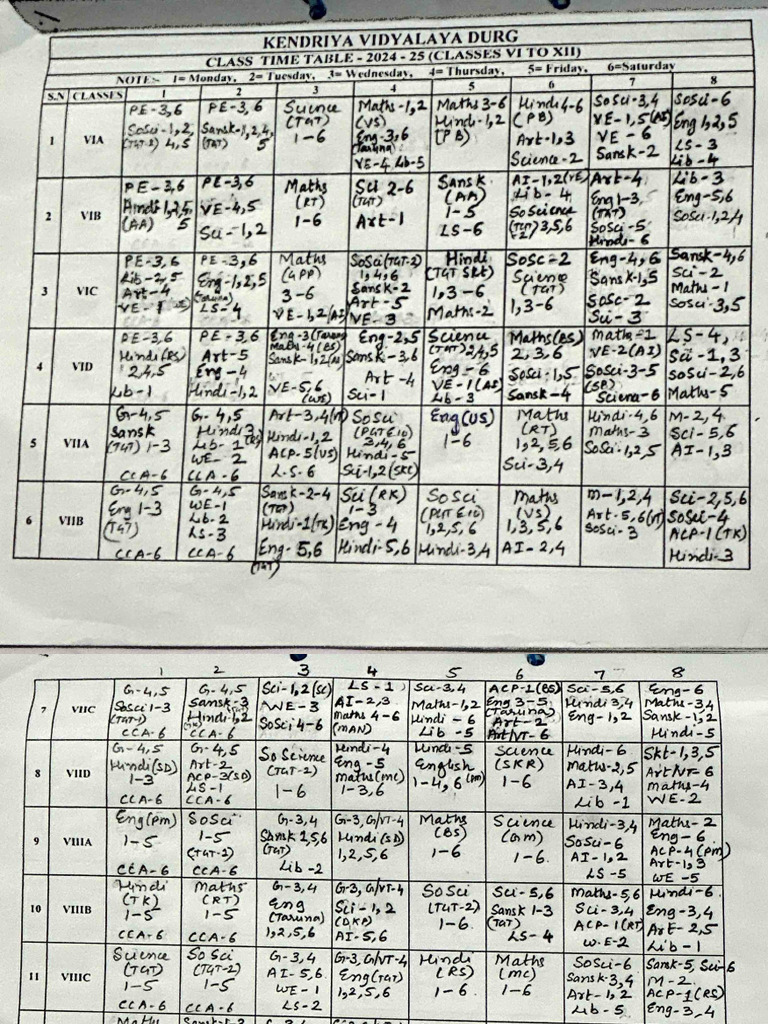 KENDRIYA VIDYALAYA DURG
CLASS TIME TABLE - 2024 - 25 (CLASSES VI TO XII)
NOTE:- 1= Monday, 2= Tuesday, 3= Wednesday, 4= Thursday, 5= Friday, 6=Saturday
S.N CLASSES 1 2 3 4 5 6 7 8
1 VIA
PE-3,6
SoSci-1,2,
(TGT-2) 4,5
PE-3,6
Sansk-1,2,4,
(TGT) 5
Science
(TGT)
1-6
Maths-1,2
(VS)
Eng-3,6
(Taruna)
VE-4 Lib-5
Maths 3-6
Hindi-1,2
(PB)
Hindi 4-6
(PB)
Art-1,3
Science-2
SoSci-3,4
VE-1,5(AS)
VE-6
Sansk-2
SoSci-6
Eng 1,2,5
LS-3
Lib-4
2 VIB
PE-3,6
Hindi 1,2,4,
(AA) 5
PE-3,6
VE-4,5
Sci-1,2
Maths
(RT)
1-6
Sci 2-6
(TGT)
Art-1
Sansk
(AA)
1-5
LS-6
AI-1,2(VE)
Lib-4
SoScience
(TGT-2) 3,5,6
Art-4
Eng 1-3,
(TGT)
SoSci-5
Hindi-6
Lib-3
Eng-5,6
SoSci-1,2,4
3 VIC
PE-3,6
Lib-2,5
Art-4
VE-1
PE-3,6
Eng-1,2,5
(Taruna)
LS-4
Maths
(GPP)
3-6
VE-1,2(AI)
SoSci(TGT-2)
1,4,6
Sansk-2
Art-5
VE-3
Hindi
(TGT SKt)
1,3-6
Maths-2
SoSc-2
Science
(TGT)
1,3-6
Eng-4,6
Sansk-1,5
SoSc-2
Sci-3
Sansk-4,6
Sci-2
Maths-1
SoSci-3,5
4 VID
PE-3,6
Hindi(RS)
2,4,5
Lib-1
PE-3,6
Art-5
Eng-4
Hindi-1,2
Eng-3(Taruna)
Maths-4(BS)
Sansk-1,2
VE-5,6
(WS)
Eng-2,5
Sansk-3,6
Art-4
Sci-1
Science
(TGT)2,4,5
Eng-6
VE-1(AS)
Lib-3
Maths(BS)
2,3,6
SoSci-1,5
Sansk-4
maths-1
VE-2(AI)
SoSci-3-5
(SP)
Science-6
LS-4,
Sci-1,3
SoSci-2,6
Maths-5
5 VIIA
G-4,5
Sansk
(TGT) 1-3
CCA-6
G-4,5
Hindi 3
Lib-1
WE-2
CCA-6
Art-3,4
Hindi-1,2
ACP-5(VS)
L.S-6
SoSci
(PGT ECO)
3,4,6
Hindi-5
Sci-1,2(SKR)
Eng(US)
1-6
Maths
(RT)
1,2,5,6
Sci-3,4
Hindi-4,6
Maths-3
SoSci-1,2,5
M-2,4
Sci-5,6
AI-1,3
6 VIIB
G-4,5
Eng 1-3
(TGT)
CCA-6
G-4,5
WE-1
Lib-2
LS-3
CCA-6
Sansk-2-4
(TGT)
Hindi-1(TK)
Eng-5,6
(TGT)
Sci(RK)
1-3
Eng-4
Hindi-5,6
SoSci
(PGT ECO)
1,2,5,6
Hindi-3,4
Maths
(VS)
1,3,5,6
AI-2,4
M-1,2,4
Art-5,6
SoSci-3
Sci-2,5,6
SoSci-4
ACP-1(TK)
Hindi-3
1 2 3 4 5 6 7 8
7 VIIC
G-4,5
SoSci 1-3
(TGT-1)
CCA-6
G-4,5
Sansk-3
Hindi-1,2
CCA-6
Sci-1,2(SC)
WE-3
SoSci 4-6
LS-1
AI-2,3
Maths 4-6
(MAN)
Sci-3,4
Maths-1,2
Hindi-6
Lib-5
ACP-1(BS)
Eng 3-5
(Taruna)
Art-2
Art/VT-6
Sci-5,6
Hindi 3,4
Eng-1,2
Eng-6
Maths-3,4
Sansk-1,2
Hindi-5
8 VIID
G-4,5
Hindi(SD)
1-3
CCA-6
G-4,5
Art-2
ACP-3(SD)
LS-1
CCA-6
SoScience
(TGT-2)
1-6
Hindi-4
Eng-5
maths(mc)
1-3,6
Hindi-5
English
1-4,6(pm)
Science
(SKR)
1-6
Hindi-6
Maths-2,5
AI-3,4
Lib-1
Skt-1,3,5
Art/VT-6
maths-4
WE-2
9 VIIIA
Eng(Pm)
1-5
CCA-6
SoSci
1-5
(TGT-2)
CCA-6
G-3,4
Sansk 2,5,6
(TGT)
Lib-2
G-3, G/VT-4
Hindi(SD)
1,2,5,6
Maths
(BS)
1-6
Science
(Gm)
1-6
Hindi-3,4
SoSci-6
AI-1,2
LS-5
Maths-2
Eng-6
ACP-4(Pm)
Art-1,3
WE-5
10 VIIIB
Hindi
(TK)
1-5
CCA-6
Maths
(RT)
1-5
CCA-6
G-3,4
Eng
(Taruna)
1,2,5,6
G-3, G/VT-4
Sci-1,2
(DKP)
AI-5,6
SoSci
(TGT-2)
1-6
Sci-5,6
Sansk 1-3
(TGT)
LS-4
Maths-5,6
Sci-3,4
ACP-1(RT)
W.E-2
Hindi-6
Eng-3,4
Art-2,5
Lib-1
11 VIIIC
Science
(TGT)
1-5
CCA-6
SoSci
(TGT-2)
1-5
CCA-6
G-3,4
AI-5,6
WE-1
LS-2
G-3, G/VT-4
Eng(TGT)
1,2,5,6
Hindi
(RS)
1-6
Maths
(mc)
1-6
SoSci-6
Sansk-3,4
Art-1,2
Lib-5
Sansk-5, Sci-6
M-2
ACP-1(RS)
Eng-3,4